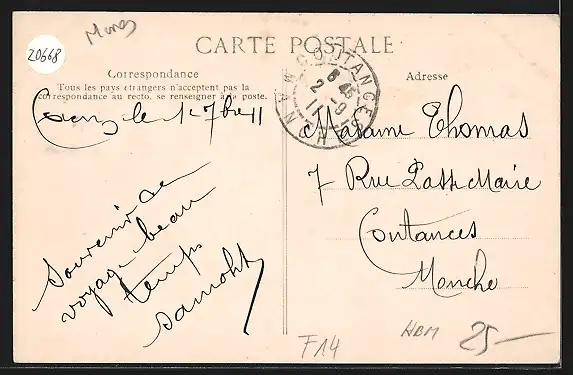 20668
CARTE POSTALE
Correspondance
Tous les pays étrangers n'acceptent pas la
correspondance au recto. se renseigner à la poste.
le 1 7bre 11
Souvenir de
voyage beau
temps
Samoht
Adresse
COUTANCES
2 - 9
11
MANCHE
Madame Thomas
7 Rue Maire
Coutances
Manche
F14
HBM
25-